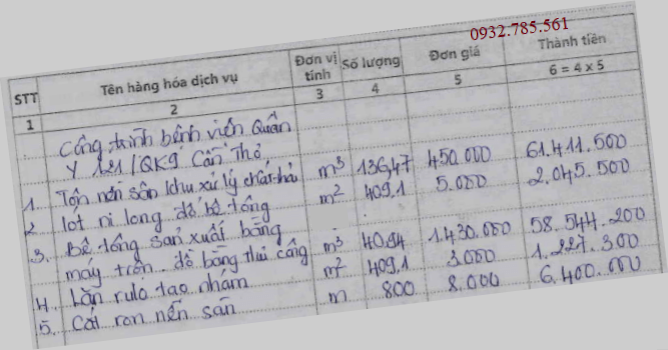 0932.785.561
STT Tên hàng hóa dịch vụ Đơn vị tính Số lượng Đơn giá Thành tiền
1 2 3 4 5 6 = 4 x 5
Công trình bệnh viện Quân
Y 121/QK9 Cần Thơ
1. Tôn nền sân khu xử lý chất thải m³ 136,47 450.000 61.411.500
2 lót ni long đổ bê tông m² 409.1 5.000 2.045.500
3. Bê tông sản xuất bằng
máy trộn. đổ bằng thủ công m³ 40.94 1.430.000 58.544.200
4. Lăn rulo tạo nhám m² 409.1 3.000 1.227.300
5. Cắt ron nền sân m 800 8.000 6.400.000